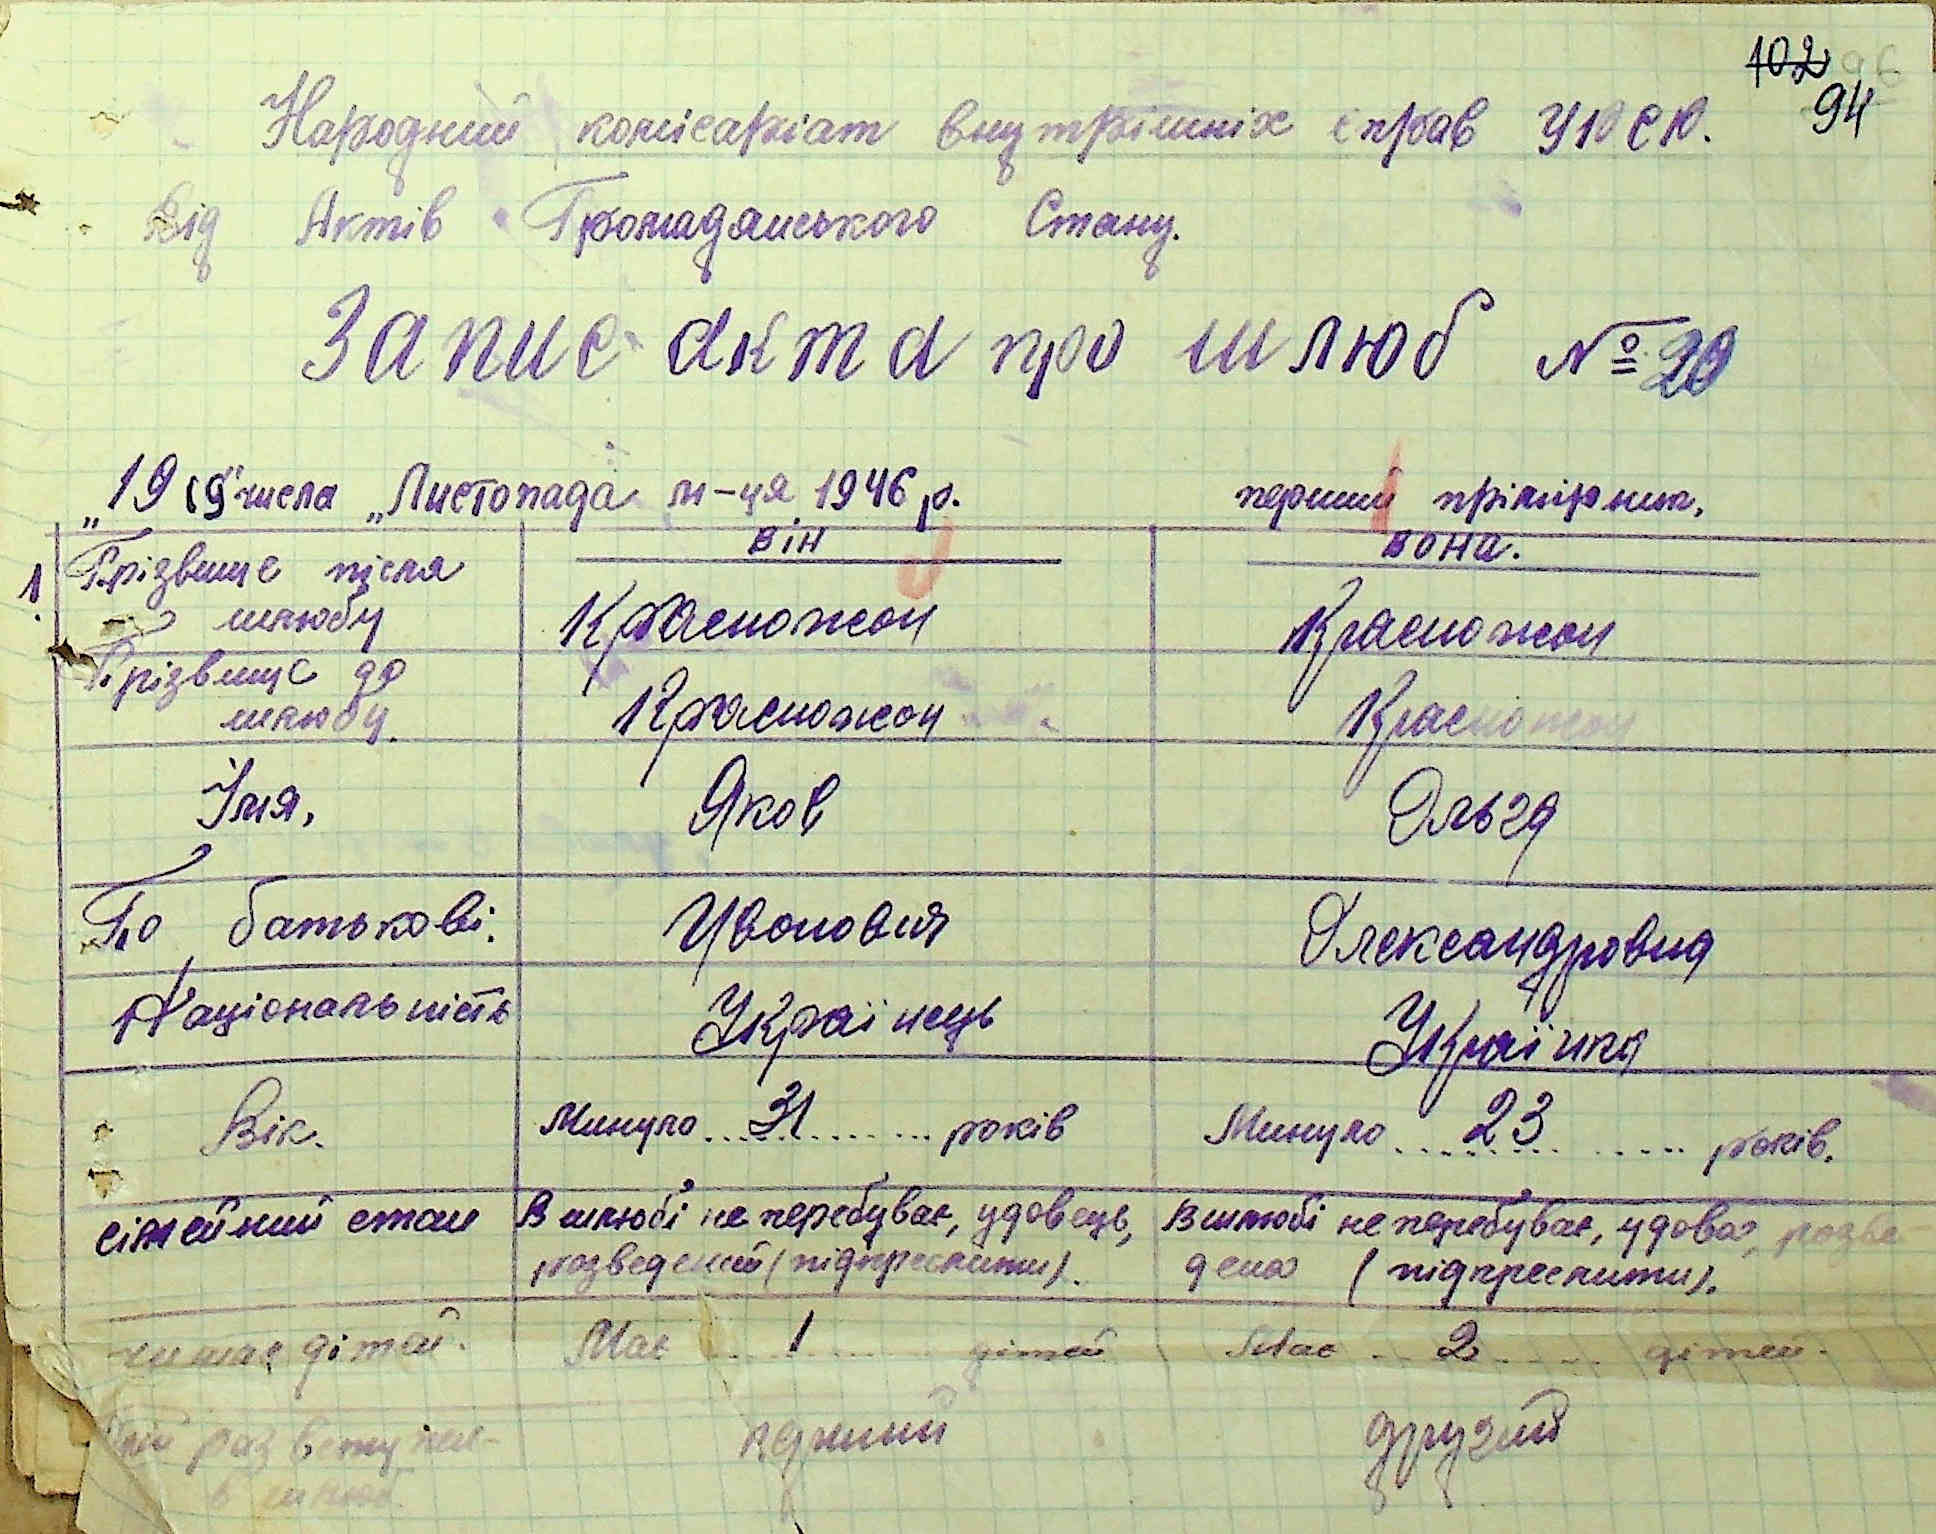 102
94
Народний комісаріат внутрішніх справ
Від Актів Громадянського Стану.
Запис акта про шлюб № 20
„19 числа „Листопада м-ця 1946 р. перший прімірник.
він вона.
1. Прізвище після
шлюбу Красножон Красножон
Прізвище до
шлюбу Красножон Красножон
Імя, Яков Ольга
По батькові. Ивонович Олександровна
Національність Українець Українка
Вік. Минуло 31 років Минуло 23 років.
сімейний стан В шлюбі не перебуває, удовець, В шлюбі не перебуває, удова, розве
розведений (підкреслити). дена (підкреслити).
чи має дітей. Має 1 дітей Має 2 дітей.
раз вступил- перший другий
в шлюб